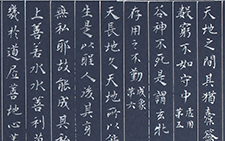 天地之間其猶橐籥
數窮不如守中 虛用第五
谷神不死是謂玄牝
存用之不勤 成象第六
天長地久天地所以能
生是以聖人後其身
無私耶故能成其私
上善若水水善利萬
幾於道居善地心善